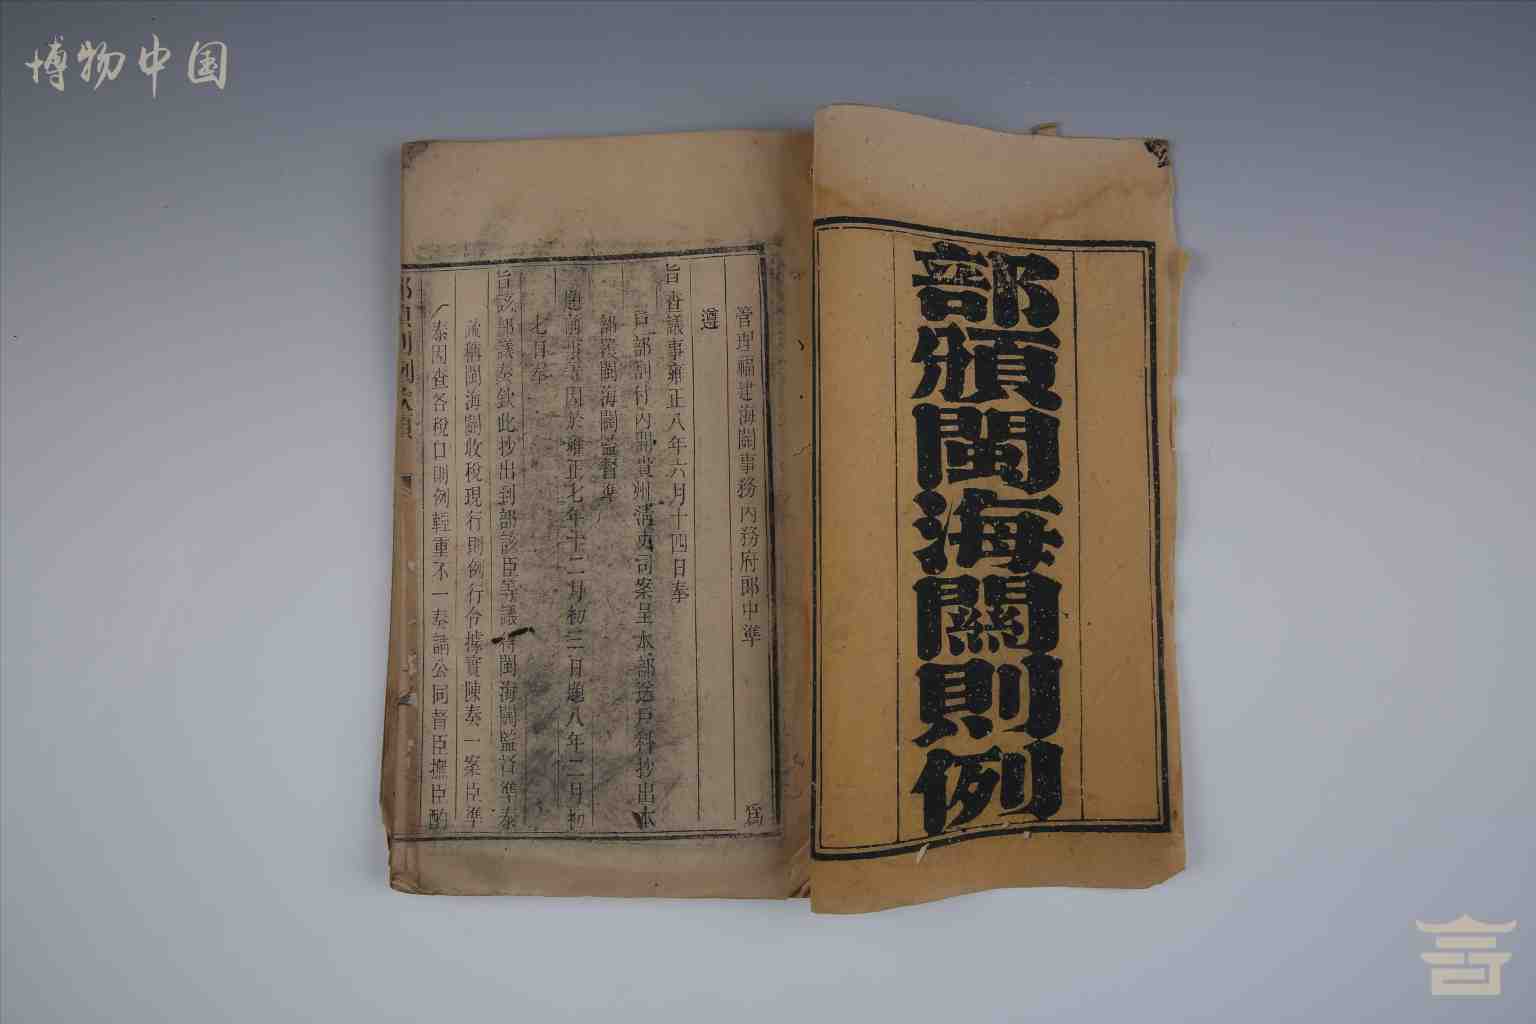 博物中国
部頒閩海關則例
管理福建海關事務內務府郎中準 爲
遵
旨查議事雍正八年六月十四日奉
戶部劄付內開貴州清吏司案呈本部送戶科抄出本
部覆閩海關監督準
題前事等因於雍正七年十二月初三日題八年二月初
七日奉
旨該部議奏欽此抄出到部該臣等議得閩海關監督準泰
疏稱閩海關收稅現行則例行令據實陳奏一案臣準
泰因查各稅口則例輕重不一奏請公同督臣撫臣酌